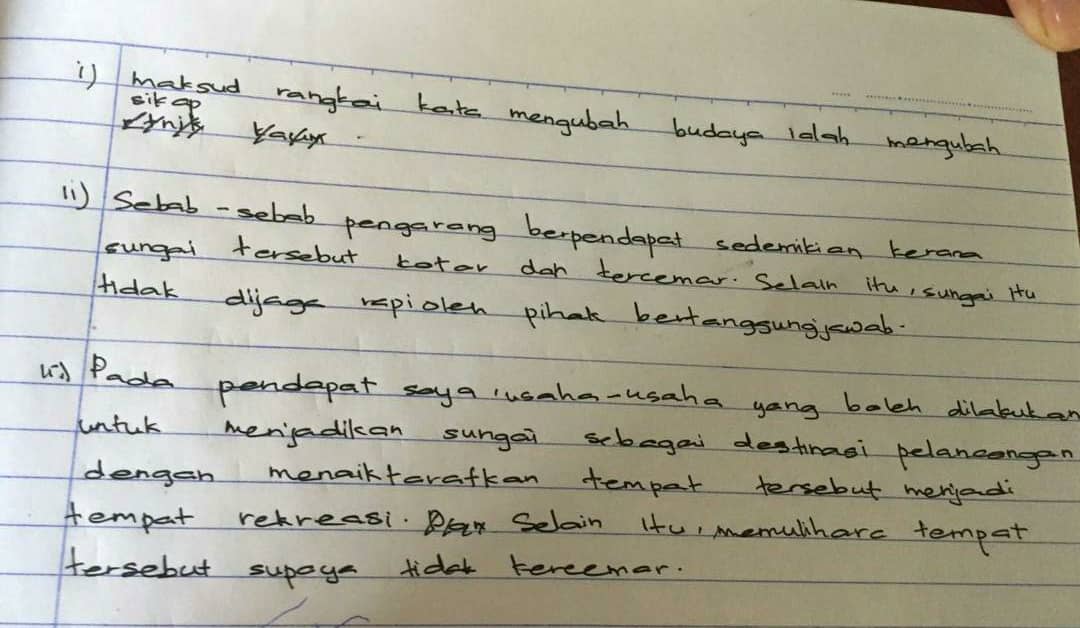 i) maksud rangkai kata mengubah budaya ialah mengubah
sikap
ii) Sebab - sebab pengarang berpendapat sedemikian kerana
sungai tersebut kotor dan tercemar. Selain itu, sungai itu
tidak dijaga rapi oleh pihak bertanggungjawab.
iii) Pada pendapat saya, usaha-usaha yang boleh dilakukan
untuk menjadikan sungai sebagai destinasi pelancongan
dengan menaiktarafkan tempat tersebut menjadi
tempat rekreasi. Selain itu, memulihara tempat
tersebut supaya tidak tercemar.